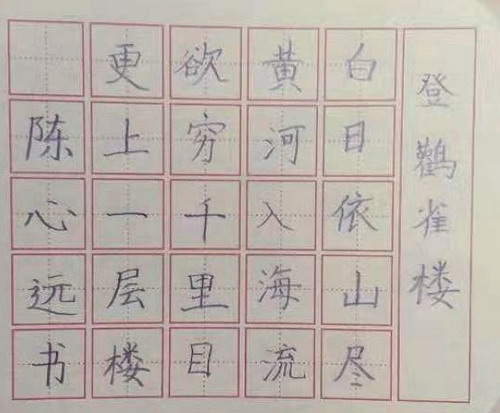 登鹳雀楼
白日依山尽
黄河入海流
欲穷千里目
更上一层楼
陈心远书